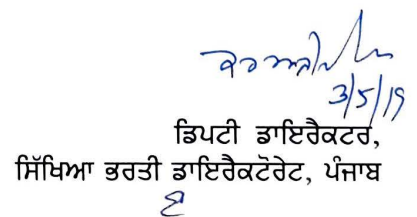 3/5/19
ਡਿਪਟੀ ਡਾਇਰੈਕਟਰ,
ਸਿੱਖਿਆ ਭਰਤੀ ਡਾਇਰੈਕਟੋਰੇਟ, ਪੰਜਾਬ